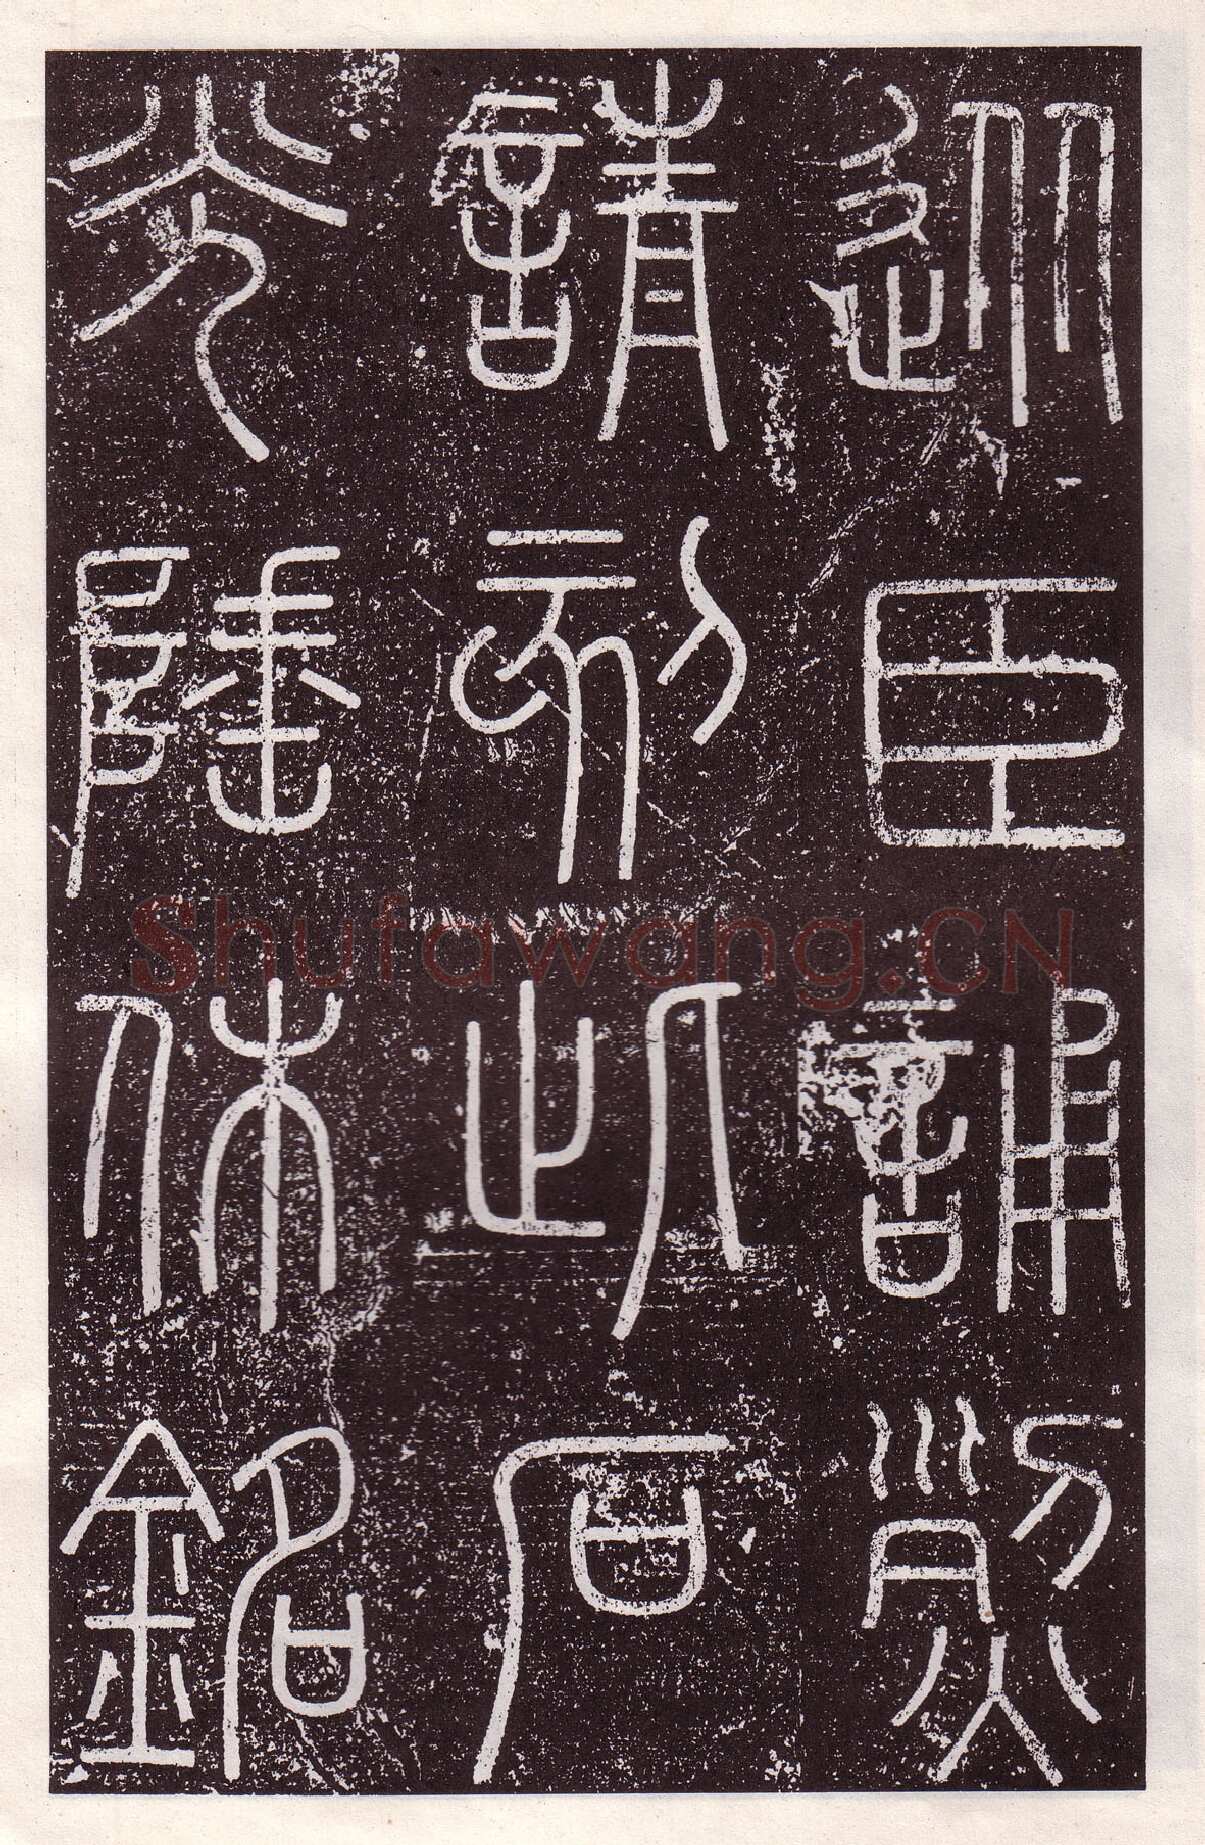 從臣誦烈
請刻此石
光陲休銘
Shufawang.CN